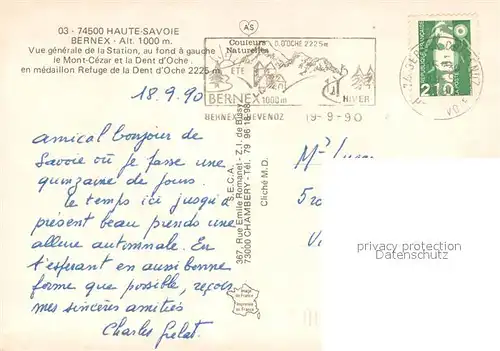 03 - 74500 HAUTE-SAVOIE
BERNEX - Alt. 1000 m.
Vue générale de la Station, au fond à gauche
le Mont-Cézar et la Dent d'Oche
en médaillon Refuge de la Dent d'Oche 2225 m
AS
Couleurs
Naturelles
D. D'OCHE 2225 m
ETE
BERNEX 1000 m
HIVER
BERNEX
19-9-90
REPUBLIQUE FRANÇAISE
2,10
18.9.90
amical bonjour de
Savoie où je passe une
quinzaine de jours.
le temps ici jusqu'à
présent beau prends une
allure automnale. En
t'espérant en aussi bonne
forme que possible, reçois
mes sincères amitiés
Charles
S.E.C.A.
367, Rue Emile Romanet - Z.I. de Bissy
73000 CHAMBERY - Tél. 79 96 18 98
Cliché M.D.
Image
de France
Imprimerie
de France
M
5
V
privacy protection
www.ansichtskarten-center.de